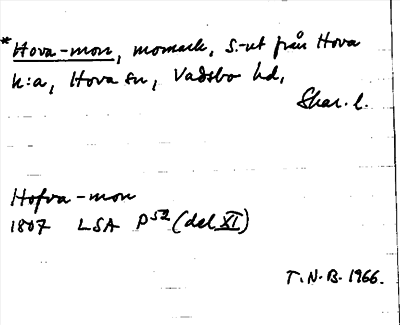 *Hova-mon, momark, S.-ut från Hova
k:a, Hova sn, Vadsbo hd,
Skar. l.
Hofva-mon
1807 LSA P52 (del XI)
T.N.B. 1966.